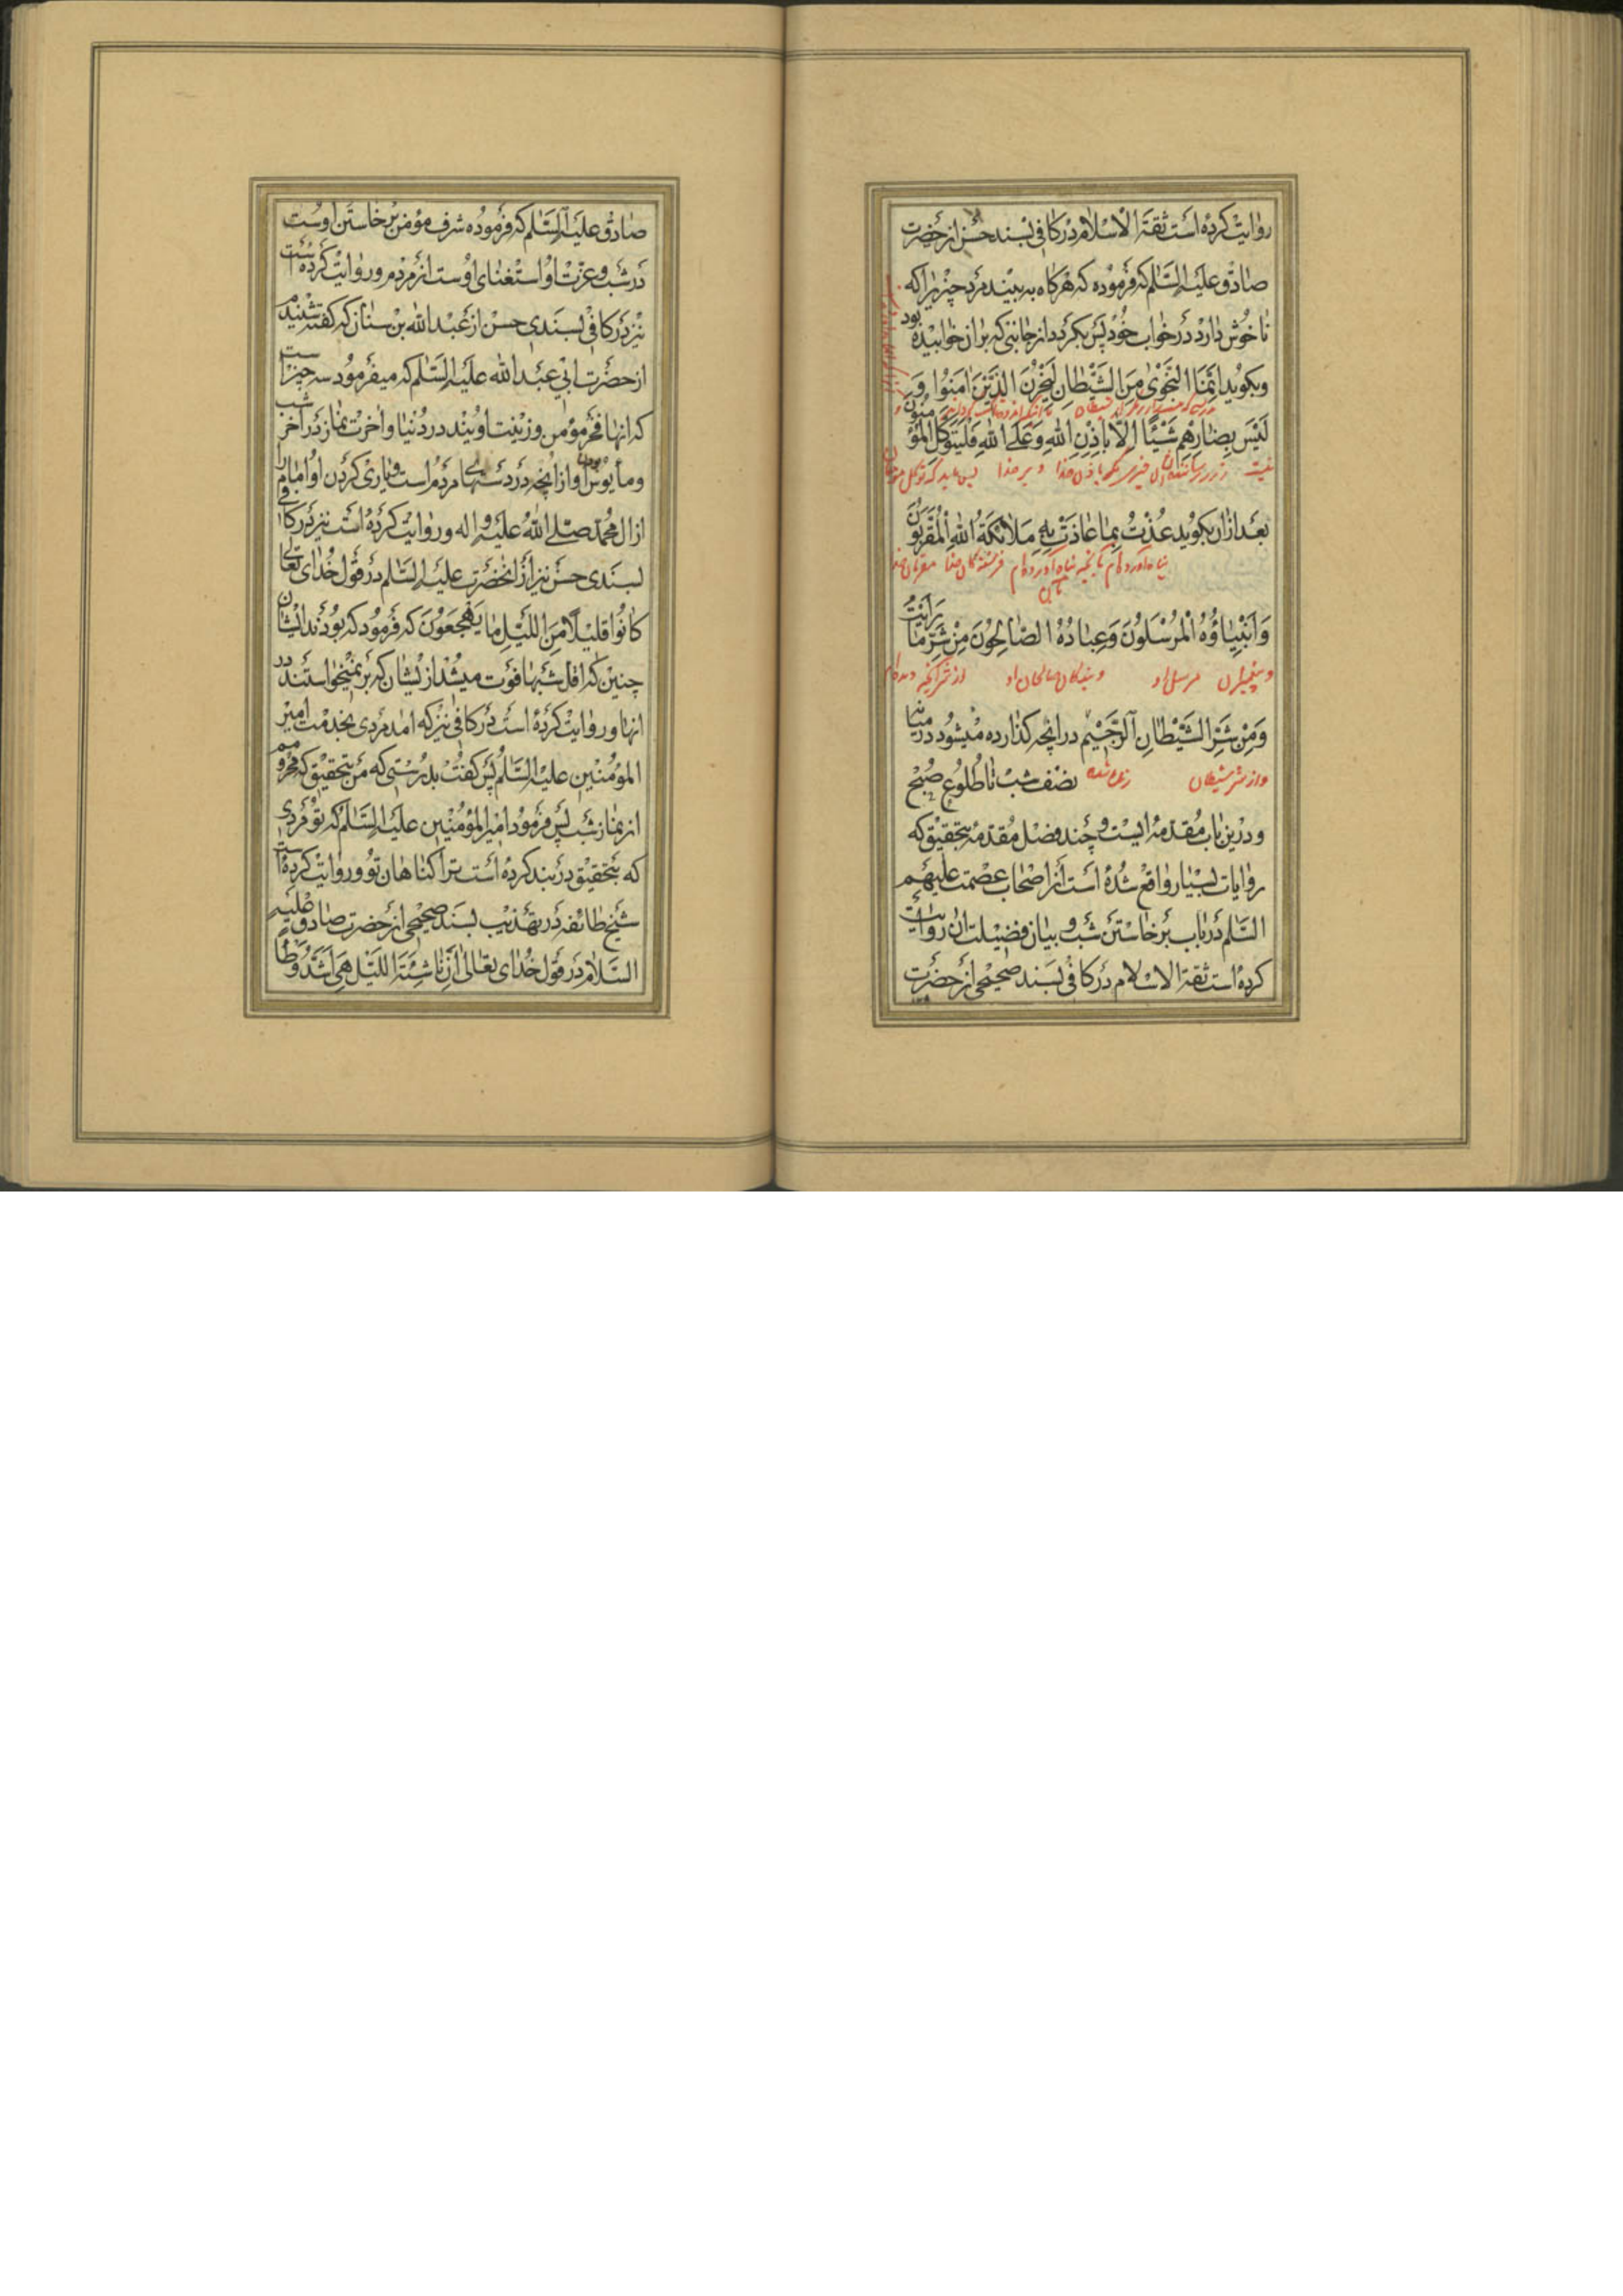 روایت کرده است ثقة الاسلام در کافی بسند حسن از حضرت
صادق علیه السلم که فرموده که هرکاه به بیند مرد چیزیرا که
ناخوش دارد در خواب خود پس بکردد از جانبی که بران خوابیده بود
وبکوید اِنَّمَا النَّجْوٰی مِنَ الشَّیْطانِ لِیَحْزُنَ الَّذِیْنَ اٰمَنُوا وَ
لَیْسَ بِضٰارِّهِم شَیْئًا اِلّا بِاِذْنِ اللهِ وَعَلَی اللهِ فَلْیَتَوَکَّلِ الْمُؤْمِنُونَ
نیست ضرر رساننده ایشان چیزی مکر باذن خدا و بر خدا پس باید که توکل
بعد ازان بکوید عُذْتُ بِمٰا عٰاذَتْ بِهِ مَلاٰئِکَةُ اللهِ الْمُقَرَّبُونَ
پناه آورده‌ام بانچه پناه آورده‌اند بآن فرشتکان خدا مقربان
وَاَنْبِیٰاؤُهُ الْمُرْسَلُونَ وَعِبٰادُهُ الصّٰالِحُونَ مِنْ شَرِّ مٰا رَاَیْتُ
و پیغمبران مرسل او و بندکان صالحان او از شر آنچه دیده‌ام
وَمِنْ شَرِّ الشَّیْطٰانِ الرَّجِیْمِ در انچه کذارده میشود در میانه
و از شر شیطان رانده شده نصف شب تا طلوع صبح
ودرین باب مقدمه ایست و چند فصل مقدمه بتحقیق که
روایات بسیار واقع شده است از اصحاب عصمت علیهم
السلم در باب برخاستن شب و بیان فضیلت ان روایت
کرده است ثقة الاسلام در کافی بسند صحیحی از حضرت
صادق علیه السلم که فرموده شرف مؤمن برخاستن اوست
در شب و عزّت او استغنای اوست از مردم وروایت کرده است
نیز در کافی بسندی حسن از عبد الله بن سنان که کفته شنیدم
از حضرت ابی عبد الله علیه السلم که میفرمود سه چیز است
که انها فخر مؤمن وزینت اویند در دنیا واخرت نماز در اخر شب
ومأیوس بودن او از انچه در دستهای مردم است ویاری کردن او امام را
از ال محمد صلی الله علیه و اله وروایت کرده است نیز در کافی
بسندی حسن نیز از انحضرت علیه السلم در قول خدای تعالی
کٰانُوا قَلیْلًا مِنَ اللَّیْلِ مٰا یَهْجَعُوْنَ که فرمود که بودند ایشان
چنین که اقل شبها فوت میشد از یشان که بر نمیخواستند در
انها وروایت کرده است در کافی نیز که امد مردی بخدمت امیر
المؤمنین علیه السلم پس کفت بدرستی که من بتحقیق که محروم
از نماز شب پس فرمود امیر المؤمنین علیه السلم که تو مردی
که بتحقیق در بند کرده است ترا کناهان تو وروایت کرده است
شیخ طائفه در تهذیب بسند صحیحی از حضرت صادق علیه
السلام در قول خدای تعالی اِنَّ نٰاشِئَةَ اللَّیْلِ هِیَ اَشَدُّ وَطْأً